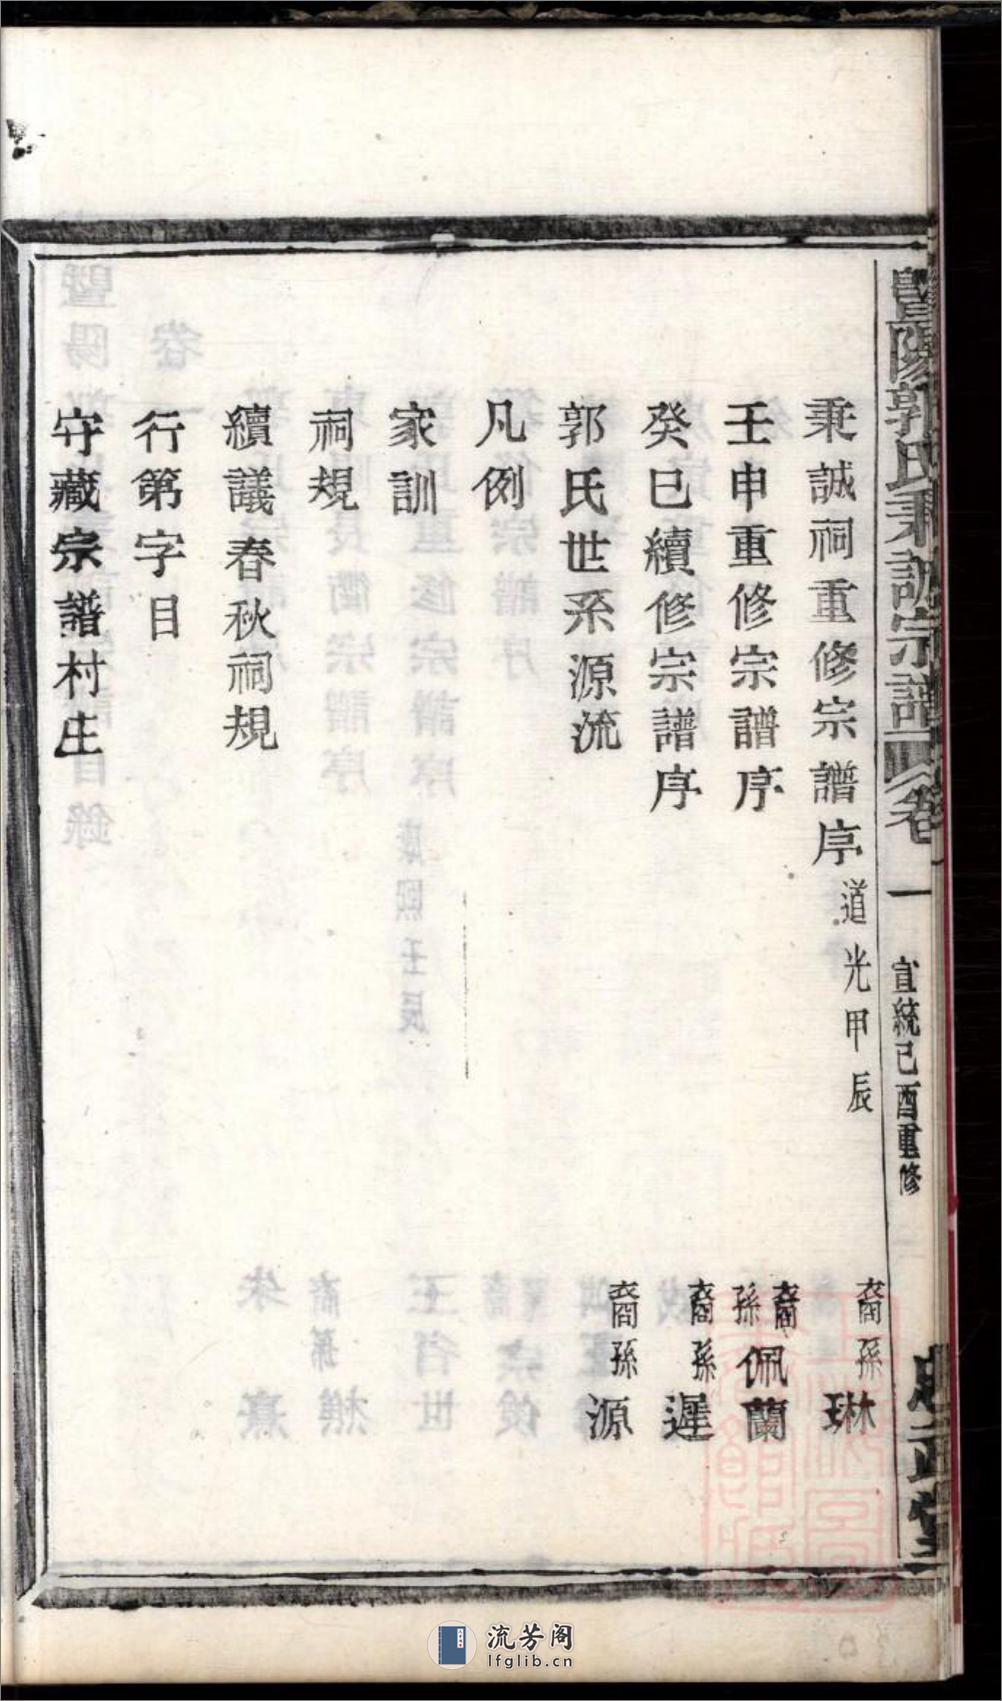 暨陽郭氏秉誠宗譜 卷一 宣統己酉重修
秉誠祠重修宗譜序 道光甲辰 裔孫琳
壬申重修宗譜序 裔孫佩蘭
癸巳續修宗譜序 裔孫遲
郭氏世系源流 裔孫源
凡例
家訓
祠規
續議春秋祠規
行第字目
守藏宗譜村庄
流芳阁
lfglib.cn